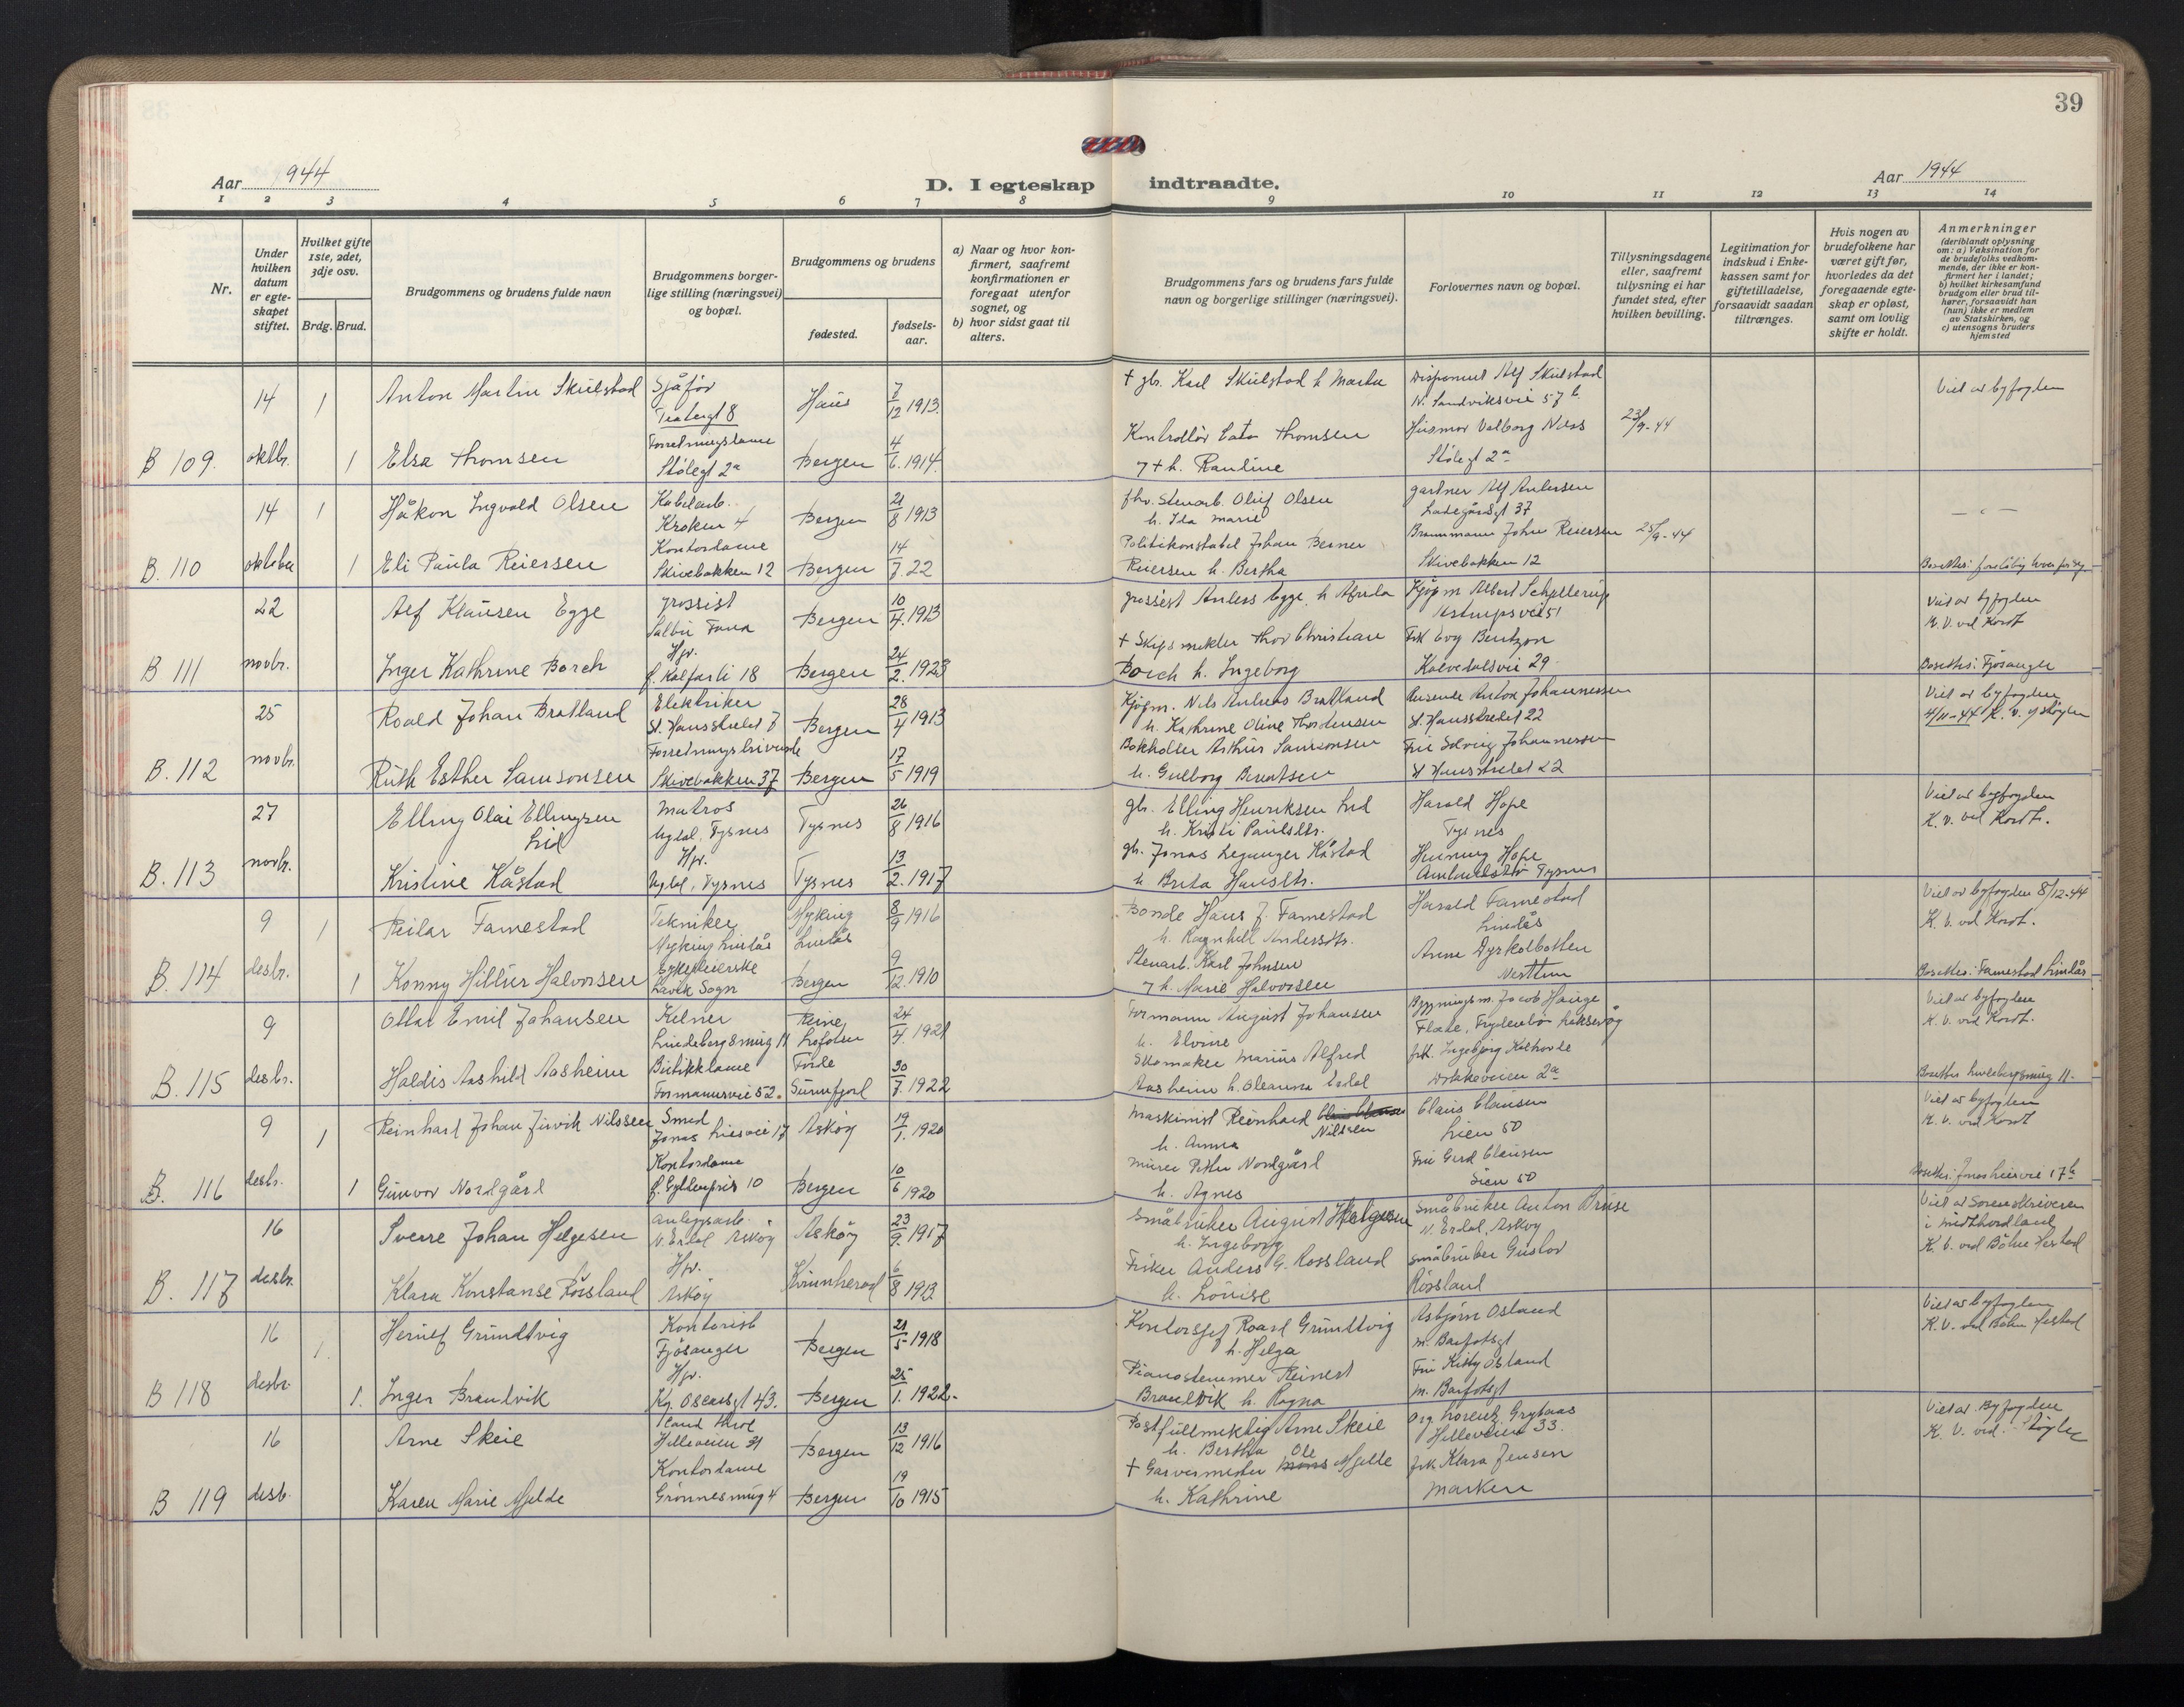 39
Aar 1944
D. I egteskap indtraadte.
Aar 1944
1 2 3 4 5 6 7 8 9 10 11 12 13 14
Nr.
Under hvilken datum er egteskapet stiftet.
Hvilket gifte 1ste, 2det, 3dje osv.
Brdg. Brud.
Brudgommens og brudens fulde navn
Brudgommens borgerlige stilling (næringsvei) og bopæl.
Brudgommens og brudens
fødested.
fødselsaar.
a) Naar og hvor konfirmert, saafremt konfirmationen er foregaat utenfor sognet, og
b) hvor sidst gaat til alters.
Brudgommens fars og brudens fars fulde navn og borgerlige stillinger (næringsvei).
Forlovernes navn og bopæl.
Tillysningsdagene eller, saafremt tillysning ei har fundet sted, efter hvilken bevilling.
Legitimation for indskud i Enkekassen samt for giftetilladelse, forsaavidt saadan tiltrænges.
Hvis nogen av brudefolkene har været gift før, hvorledes da det foregaaende egteskap er opløst, samt om lovlig skifte er holdt.
Anmerkninger
(deriblandt oplysning om: a) Vaksination for de brudefolks vedkommende, der ikke er konfirmert her i landet; b) hvilket kirkesamfund brudgom eller brud tilhører, forsaavidt han (hun) ikke er medlem av Statskirken, og c) utensogns bruders hjemsted
14 1 Anton Martin Skulstad Sjåfør Teatergt 8 Haus 7/12 1913. + gbr. Karl Skulstad h. Marta Disponent Alf Skulstad N. Sandviksvei 57 b. Viet av byfogden
B 109. oktbr. 1 Elsa Thomsen Forretningsdame Stølegt 2a Bergen 4/6. 1914. Kontrollør Cato Thomsen 7 + h. Pauline Husmor Valborg Næss Stølegt 2a 23/9-44
14 1 Håkon Ingvald Olsen Kabelarb. Kroken 4 Bergen 21/8 1913 fhv. Stenarb. Oluf Olsen h. Ida Marie gartner Alf Andersen Ladegårdsgt 37 — " —
B. 110 oktober 1 Eli Paula Reiersen Kontordame Skivebakken 12 Bergen 14/7. 22 Politikonstabel Johan Berner Reiersen h. Bertha Brannmann John Reiersen Skivebakken 12 25/9-44 Bosettes: foreløbig hver for seg
22 Alf Klausen Egge grossist Sælbu Fana Bergen 10/4. 1913 grossist Anders Egge, h. Alfrida Kjøpm Albert Schjelderup Astrupsvei 51 Viet av byfogden K. V. ved Kordt
B 111 novbr. Inger Kathrine Borch Hjv. f. Kalfarli 18 Bergen 24/2. 1923 + Skipsmekler Thor Christian Borch h. Ingeborg Frk Evy Bentzon Kalvedalsvei 29. Bosettes: Fjøsanger
25 Roald Johan Bratland Elektriker St. Hansstredet 7 Bergen 28/4 1913 Kjøpm. Nils Andreas Bratland h. Kathrine Oline Thordensen Reisende Anton Johannessen St. Hansstredet 22 Viet av byfogden 4/11-44 K. V. v/ Støylen
B. 112 novbr. Ruth Esther Samsonsen Forretningsdrivende Skivebakken 37 Bergen 17/5 1919 Bokholder Arthur Samsonsen h. Gudborg Berentsen Fru Solveig Johannessen St Hansstredet 22
27 Elling Olai Ellingsen Lid Matros Uggdal, Tysnes Tysnes 26/8 1916 gbr. Elling Henriksen Lid h. Kristi Paulsdtr. Harald Hope Tysnes Viet av byfogden K. V. ved Kordt.
B. 113 novbr. Kristine Kåstad Hjv. Uggdal, Tysnes Tysnes 13/2. 1917 gbr. Jonas Leganger Kåstad h Brita Hansdtr. Henning Hope Tysnes
9 1 Reilar Famestad Tekniker Myking Lindås Myking Lindås 8/9 1916 Bonde Hans J. Famestad h. Ragnhild Andersdtr. Harald Famestad Lindås Viet av byfogden 8/12-44 K. V. ved Kordt.
B. 114 desbr. 1 Konny Hildur Halvorsen Sykepleierske Lavik Sogn Bergen 9/12. 1910 Stenarb. Karl Johnsen 7 h. Marie Halvorsen Arne Dyrkolbotten Nesttun Bosettes: Famestad Lindås
9 Ottar Emil Johansen Kelner Lindebergsmug 11 Reine Lofoten 24/4. 1921 Formann August Johansen h. Elvine Bygningsm. Jacob Hauge Flaate, Frydenbø Laksevåg Viet av byfogden K. V. ved Kordt.
B. 115 desbr. Haldis Aashild Aasheim Butikkdame Formannsvei 52. Førde Sunnfjord 30/7. 1922 Skomaker Marius Alfred Aasheim h. Oleanna Erdal frk. Ingebjørg Kolhovde Dokkeveien 2a Bosettes Lindebergsmug 11.
9 1 Reinhard Johan Jervik Nilssen Smed Jonas Liesvei 17 Askøy 19/1. 1920 Maskinist Reinhard Nilssen h. Anna Claus Clausen Lien 50 Viet av byfogden K. V. ved Kordt
B. 116 desbr. 1 Gunvor Nordgård Kontordame f. Gyldenpris 10 Bergen 10/6 1920 Murer Peter Nordgård h. Agnes Fru Gerd Clausen Lien 50 Bosettes: Jonas Liesvei 17 b
16 Sverre Johan Helgesen anleggsarb. N. Erdal Askøy Askøy 23/9. 1917 Småbruker August Helgesen h. Ingeborg Småbruker Anton Bruse N. Erdal, Askøy Viet av Sorenskriveren i Midthordland K. V. ved Bøhn Hestad
B. 117 desbr. Klara Konstanse Røssland Hjv. Askøy Kvinnherad 6/8 1913. Fisker Anders G. Rossland h. Louise Småbruker Gustav Røssland
16 1. Herulf Grundtvig Kontorist Fjøsanger Bergen 21/5 1918 Kontorsjef Roald Grundtvig h. Helga Asbjørn Osland M. Barfotsgt Viet av byfogden K. V. ved Bøhn Hestad
B 118 desbr. 1. Inger Brandvik Hjv. Kg. Oscarsgt 43. Bergen 25/1. 1922. Pianostemmer Reinert Brandvik h. Ragna Fru Kitty Osland M. Barfotsgt
16 Arne Skeie Cand theol Helleveien 31 Bergen 13/12 1916 Postfullmektig Arne Skeie h. Bertha Org Lorentz Grythaas Helleveien 33. Viet av. Byfogden K. V. ved. Støylen
B 119 desb. Karen Marie Mjelde Kontordame Grønnesmug 4 Bergen 19/10 1915 + Garvermester Ole Mjelde h. Kathrine frk Klara Jensen Marken